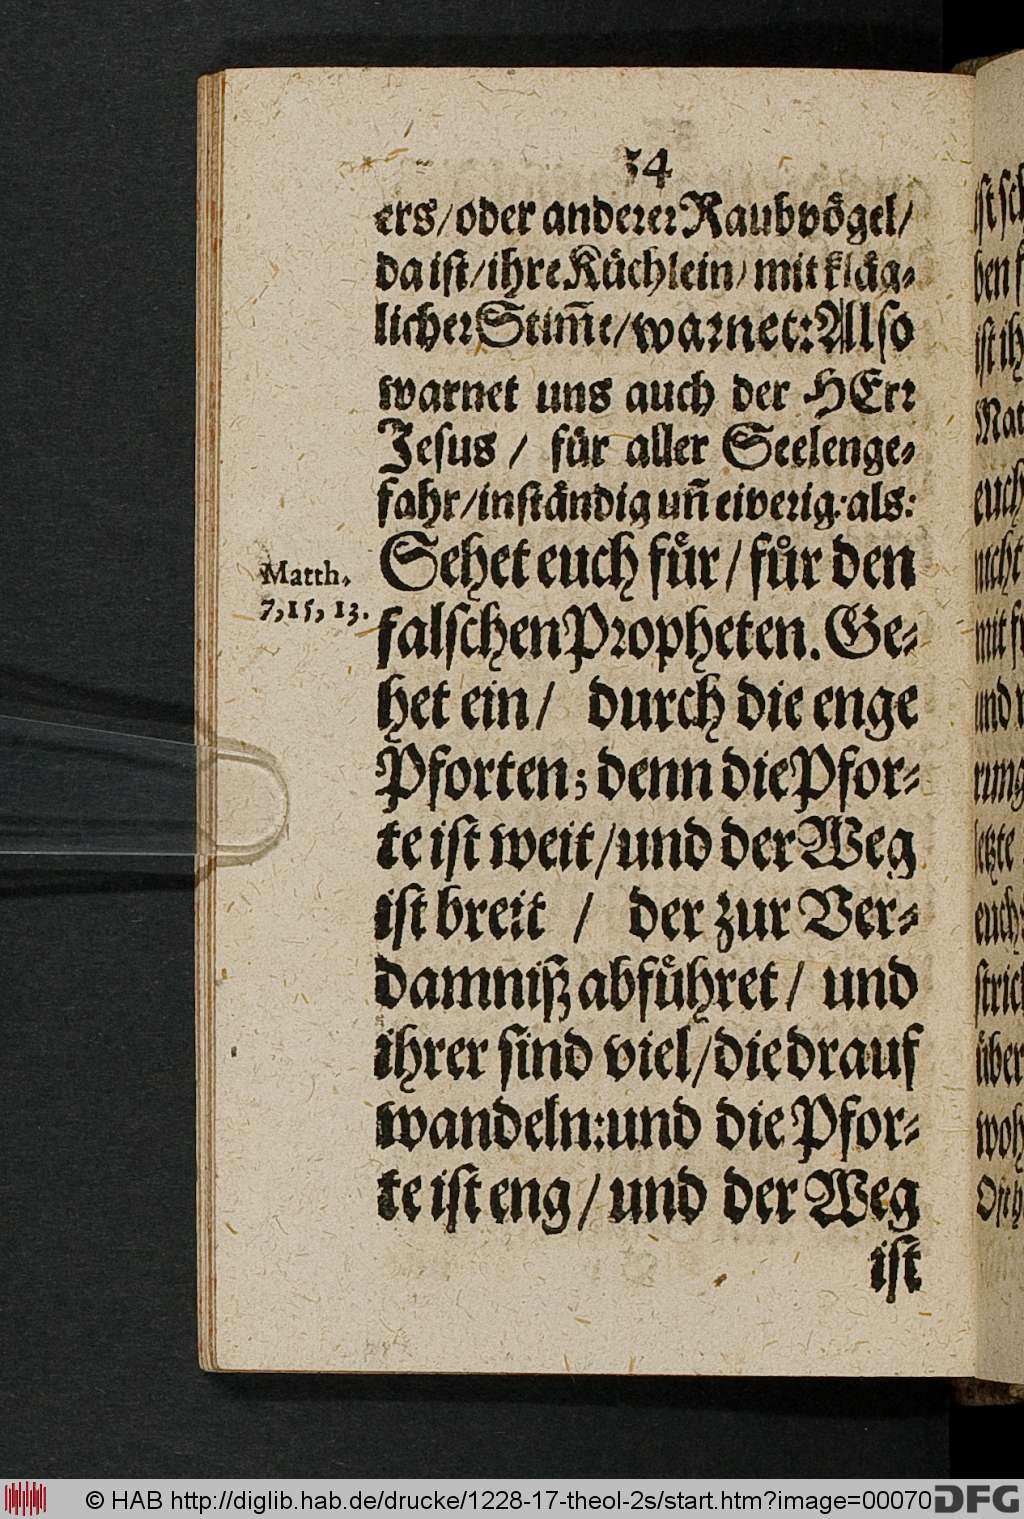 34
ers/oder anderer Raubvögel/
da ist/ihre Küchlein/mit kläg⸗
licher Stim̃e/warnet: Also
warnet uns auch der HErr
Jesus / für aller Seelenge⸗
fahr/inständig uñ eiverig: als:
Sehet euch fuͤr / fuͤr den
Matth.
7,15, 13.
falschen Propheten. Ge⸗
het ein / durch die enge
Pforten; denn die Pfor⸗
te ist weit/und der Weg
ist breit / der zur Ver⸗
damniß abfuͤhret / und
ihrer sind viel/die drauf
wandeln: und die Pfor⸗
te ist eng / und der Weg
ist
© HAB http://diglib.hab.de/drucke/1228-17-theol-2s/start.htm?image=00070
DFG